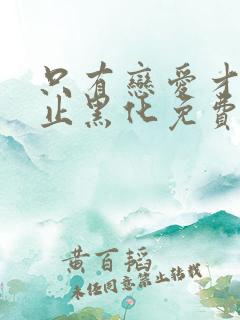 只有戀愛才
止黑化免費
黄百韬
未经同意禁止转载